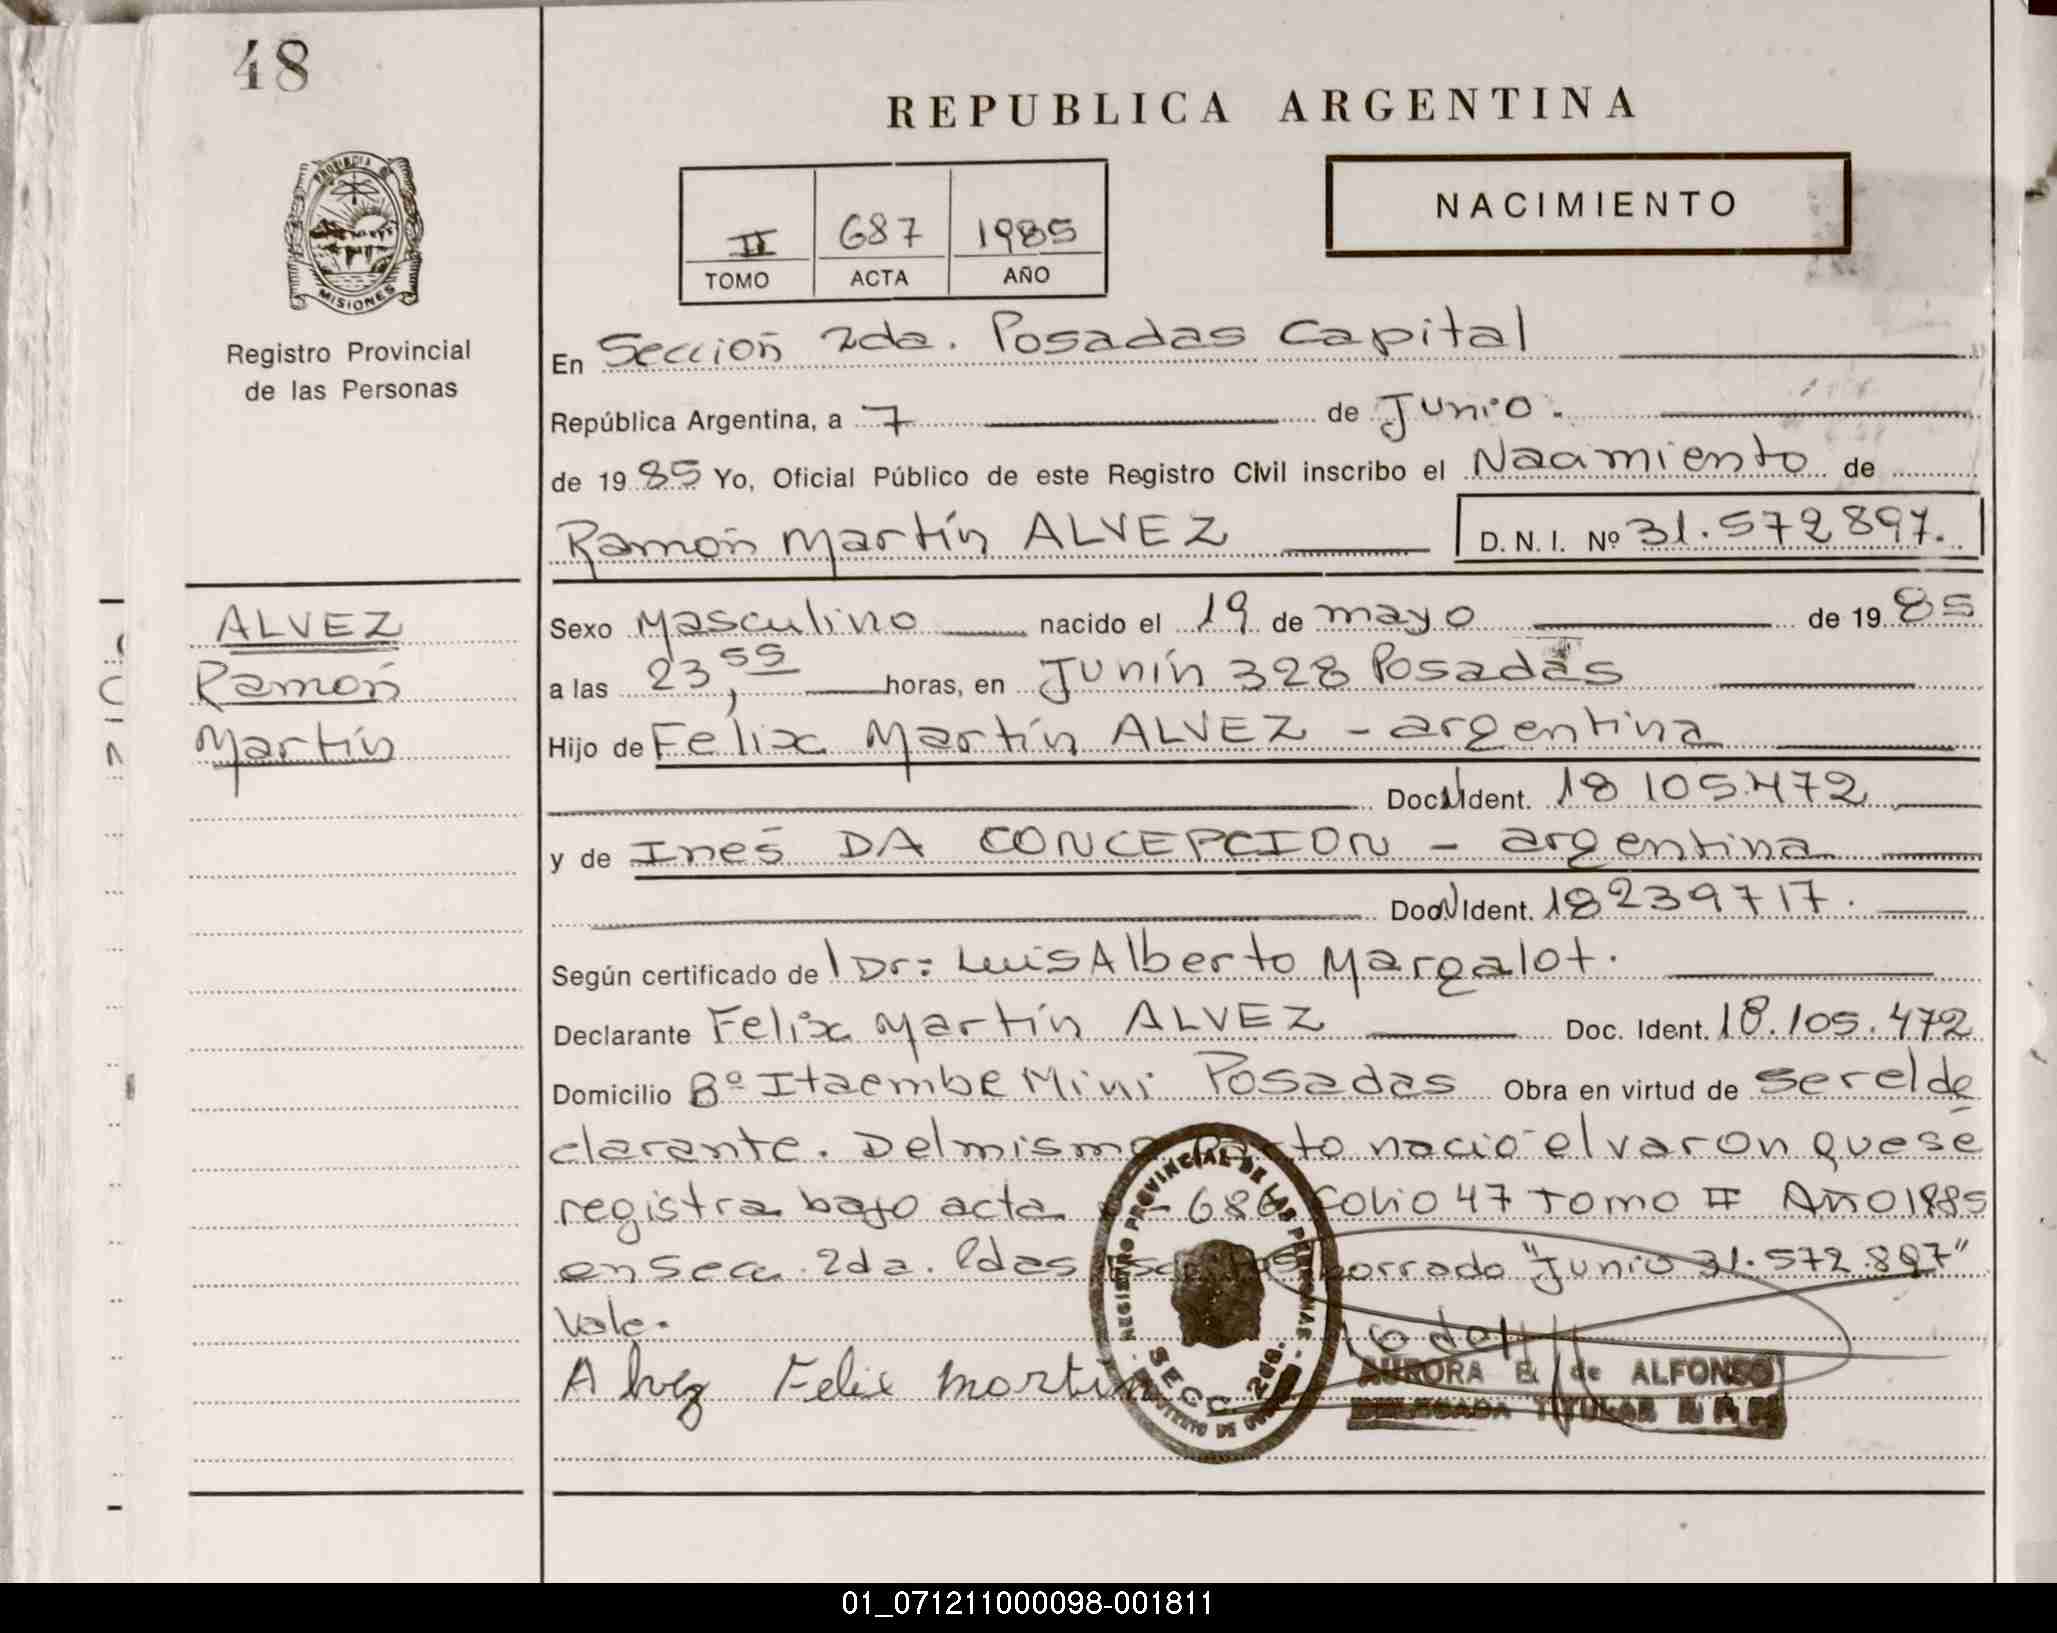 48
REPUBLICA ARGENTINA
PROVINCIA
MISIONES
Registro Provincial
de las Personas
II 687 1985
TOMO ACTA AÑO
NACIMIENTO
En Sección 2da. Posadas Capital
República Argentina, a 7 de Junio.
de 1985 Yo, Oficial Público de este Registro Civil inscribo el Nacimiento de
Ramón Martín ALVEZ D.N.I. Nº 31.572897.
ALVEZ
Ramón
Martín
Sexo Masculino nacido el 19 de mayo de 1985
a las 23,55 horas, en Junín 328 Posadas
Hijo de Felix Martín ALVEZ - argentina
Doc. Ident. 18 105.472
y de Inés DA CONCEPCION - argentina
Doc. Ident. 18239717.
Según certificado de l Dr: Luis Alberto Margalot.
Declarante Felix Martín ALVEZ Doc. Ident. 18.105.472
Domicilio Bº Itaembe Mini Posadas Obra en virtud de ser el de
clarante. Del mismo parto nació el varon que se
registra bajo acta 686 folio 47 Tomo II Año 1985
en Secc. 2da. Pdas borrado "Junio 31.572.897"
Vale.
Alvez Felix Martin
REGISTRO PROVINCIAL DE LAS PERSONAS
SECC. 2da.
AURORA E. de ALFONSO
DELEGADA TITULAR R.P.P.
01_071211000098-001811